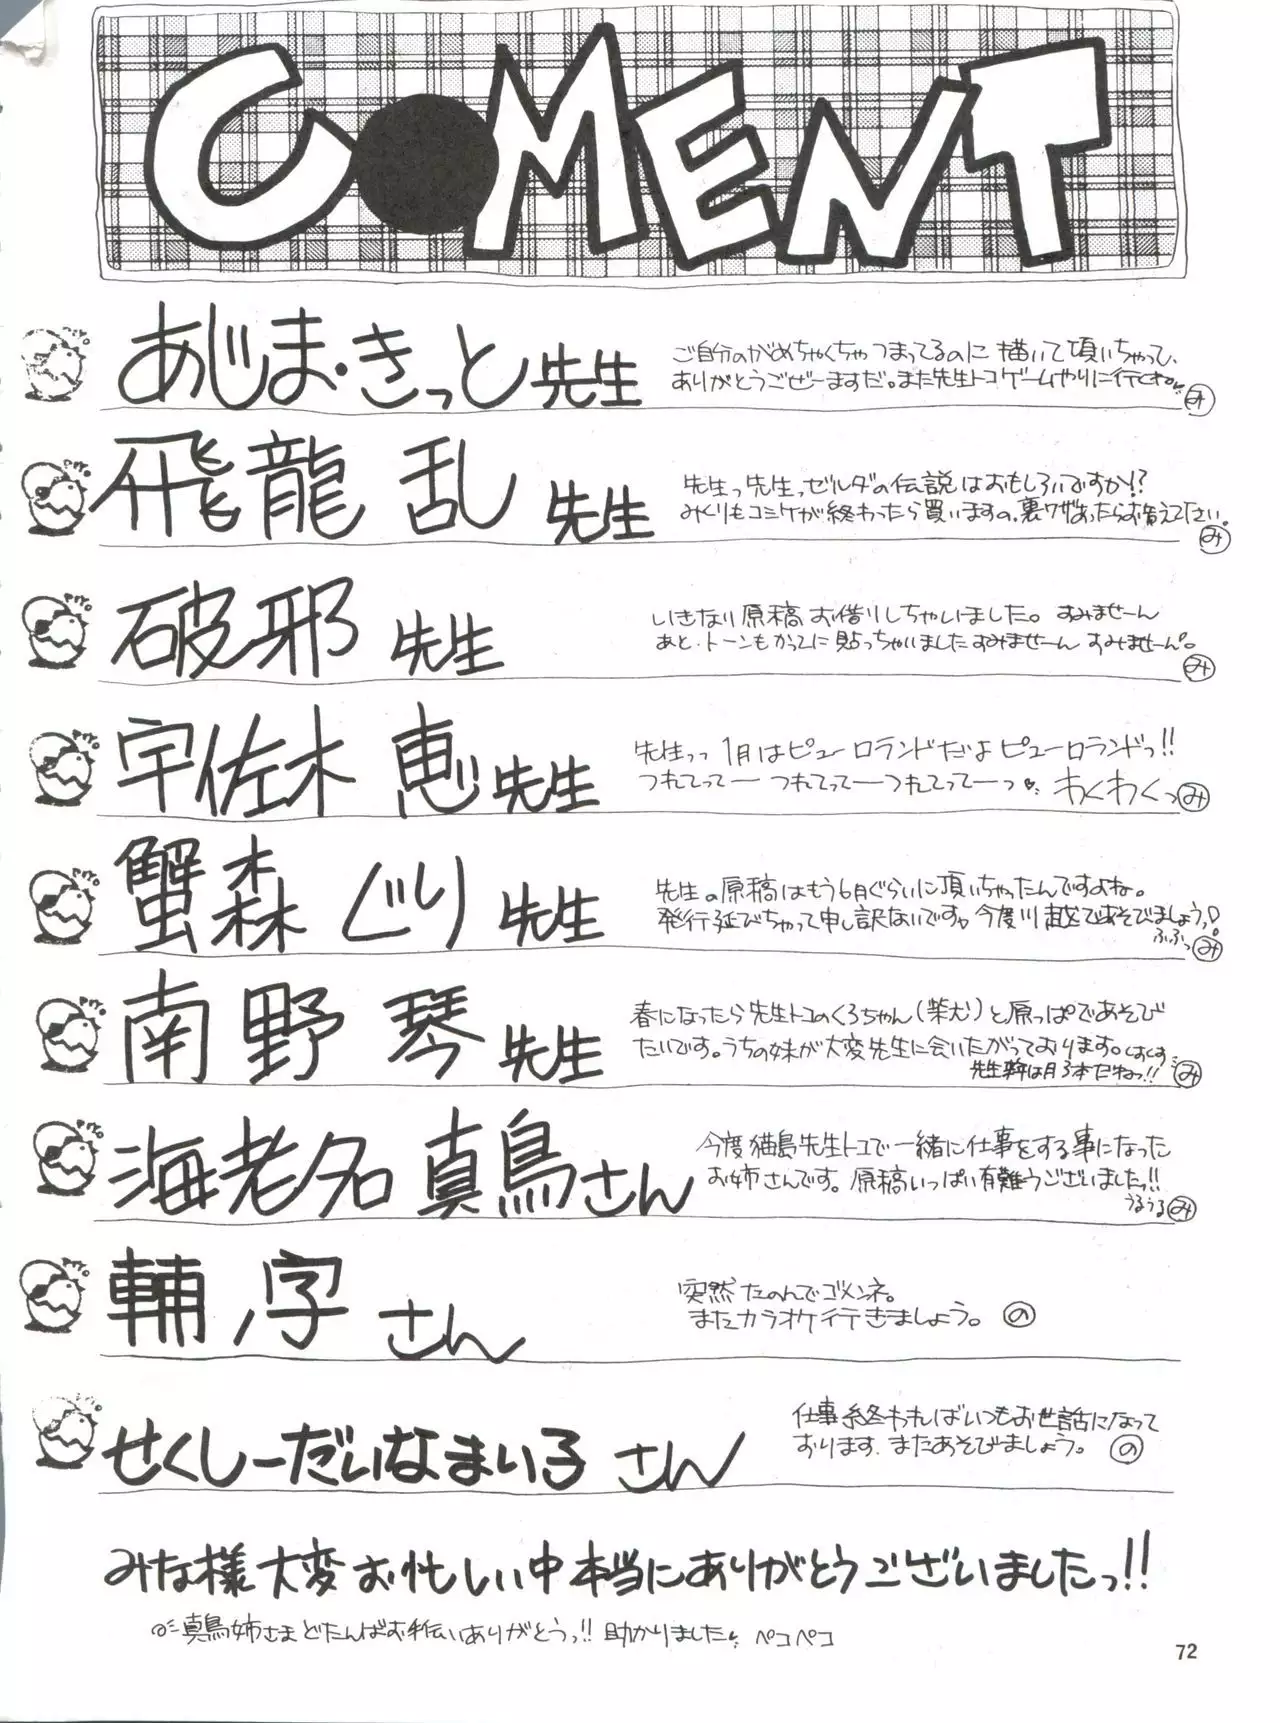 COMENT
PIYO
あじま・きっと先生
ご自分のがめちゃくちゃつまってるのに描いて頂いちゃって、
ありがとうごぜーますだ。また先生トコゲームやりに行くわ み
PIYO
飛龍 乱 先生
先生っ先生っゼルダの伝説はおもしろいですか!?
みくりもコミケが終わったら買いますの。裏ワザあったらお教えてください。
み
PIYO
破邪 先生
いきなり原稿お借りしちゃいました。すみませーん
あと、トーンもかってに貼っちゃいましたすみませーんすみませーん。
み
PIYO
宇佐木 恵先生
先生っっ1月はピューロランドだよピューロランドっ!!
つれてってーつれてってーつれてってーっ♥ わくわくっ み
PIYO
蟹森 ぐり 先生
先生の原稿はもう6月ぐらいに頂いちゃったんですよね。
発行延びちゃって申し訳ないです。今度川越であそびましょうっ!
ふふっ み
PIYO
南野 琴 先生
春になったら先生トコのくろちゃん(柴犬)と原っぱであそび
たいです。うちの妹が大変先生に会いたがっております。くすくす
先生 は月3本だねっ!! み
PIYO
海老名 真鳥さん
今度猫島先生トコで一緒に仕事をする事になった
お姉さんです。原稿いっぱい有難うございましたっ!!
うるうる み
PIYO
輔ノ字さん
突然たのんでゴメンネ。
またカラオケ行きましょう。 の
PIYO
せくしーだいなまい子 さん
仕事終わればいつもお世話になって
おります。またあそびましょう。 の
みな様大変お忙しい中本当にありがとうございましたっ!!
真鳥姉さまどたんばお手伝いありがとうっ!! 助かりました ペコペコ
72